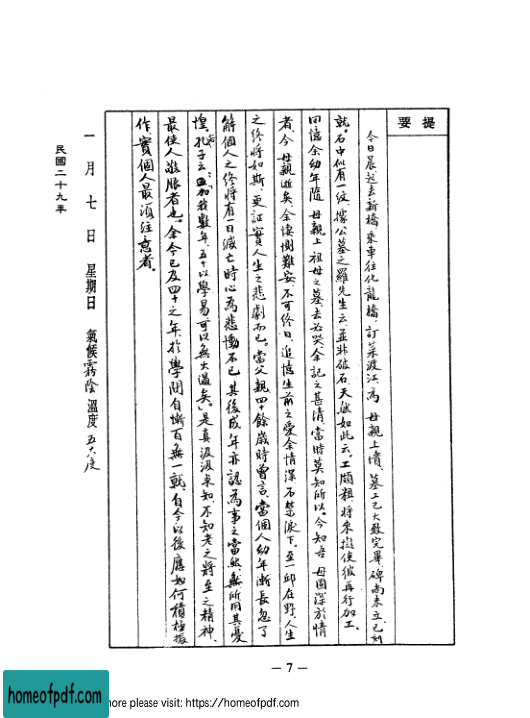 提要
今日晨起去新橋，乘車往化龍橋，訂菜渡江，為 母親上墳，墓工已大致完畢，碑尚未立，已刻
就。石中似有一紋，據公墓之羅先生云，並非破石，天然如此云。工頗粗，將來擬使彼再行加工。
回憶余幼年隨 母親上 祖母之墓，去必哭，余記之甚清，當時莫知所以。今知吾 母固深於情
者，今 母親逝矣，余悽惻難安，不可終日，追憶生前之愛余情深，不禁淚下。至一邱在野，人生
之終將如斯，更証實人生之悲劇而已。當父親四十餘歲時曾言，當個人幼年漸長忽了
解個人之終將有一日滅亡時，心為悲慟不已，其後成年亦認為事之當然，無所用其憂
惶，孔子云：「加我數年，五十以學易，可以無大過矣。」是真汲汲求知，不知老之將至之精神，
最使人敬服者也。余今已及四十之年，於學問自慚百無一就，自今以後應如何積極振
作，實個人最須注意者。
一月七日 星期日 氣候霧陰 溫度五六度
民國二十九年
— 7 —
homeofpdf.com
ore please visit: https://homeofpdf.com